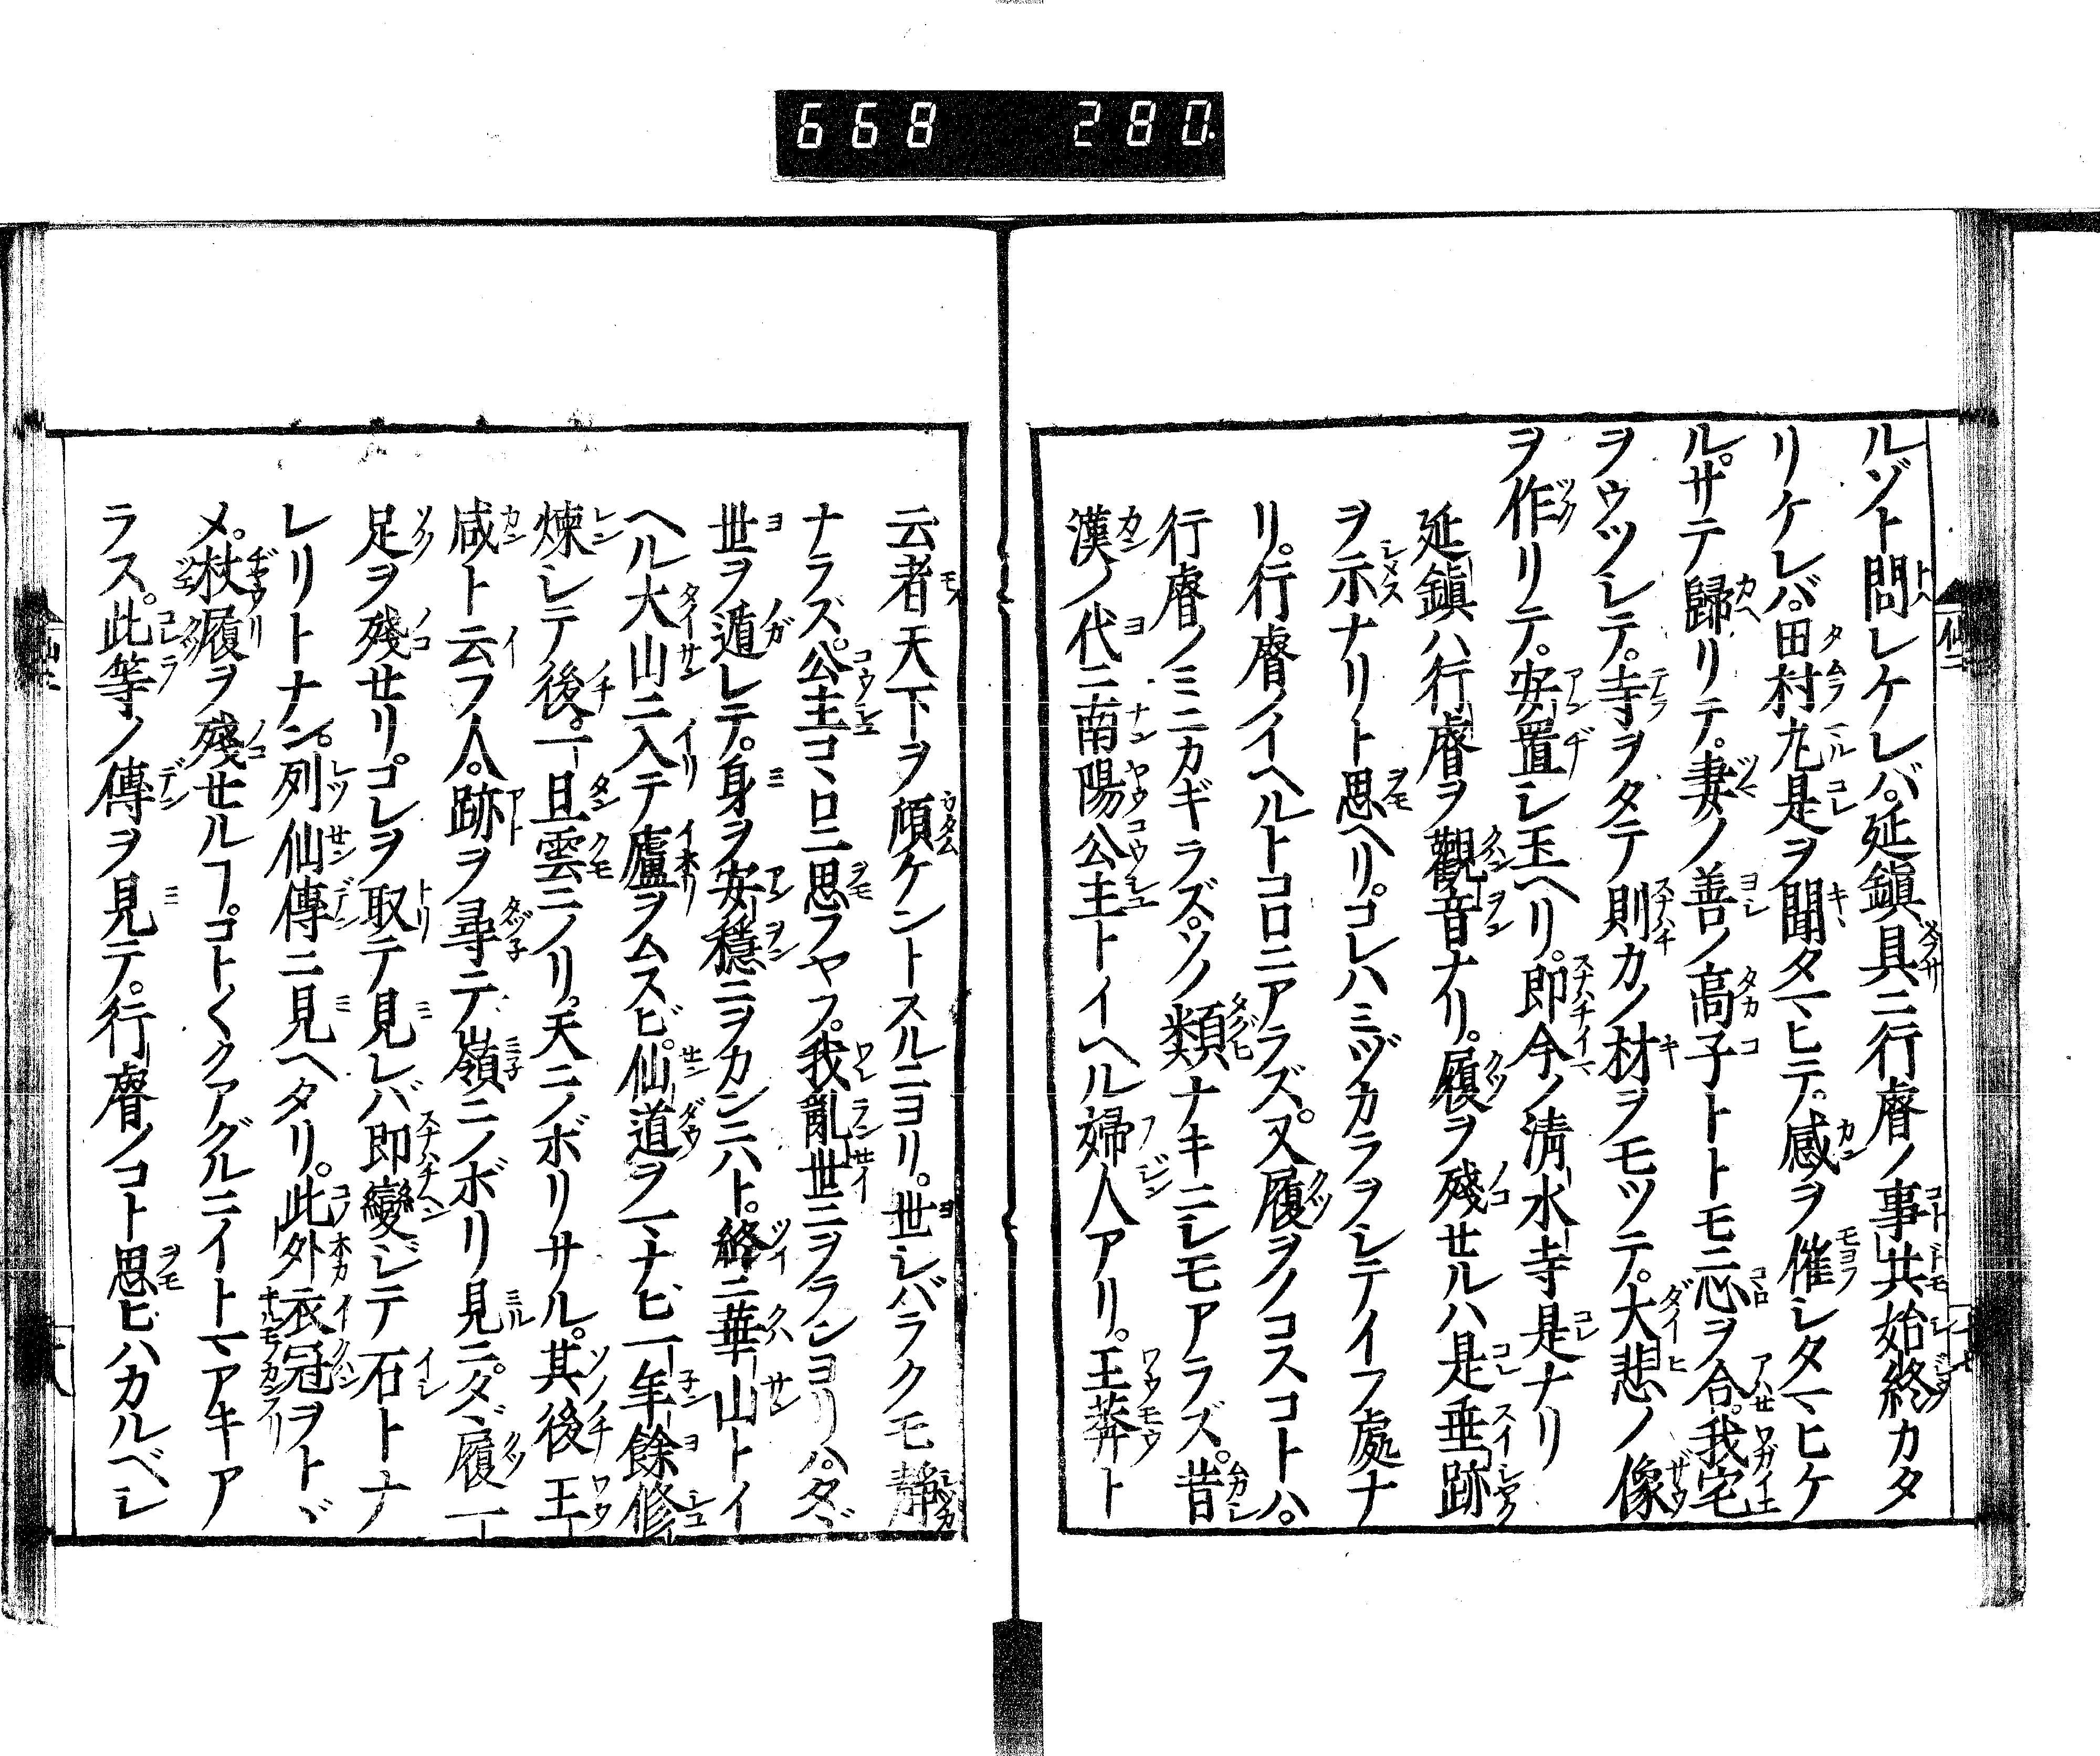 668 280.
ルゾト問レケレバ。延鎭具ニ行睿ノ事共始終カタ
リケレバ。田村丸是ヲ聞タマヒテ。感ヲ催シタマヒケ
ル。サテ歸リテ。妻ノ善ノ高子トトモニ心ヲ合。我宅
ヲウツシテ。寺ヲタテ則カノ材ヲモツテ。大悲ノ像
ヲ作リテ。安置シ玉ヘリ。即今ノ淸水寺是ナリ
延鎭ハ行睿ヲ觀音ナリ。履ヲ殘セルハ是垂跡
ヲ示ナリト思ヘリ。コレハミヅカラヲシテイフ處ナ
リ。行睿ノイヘルトコロニアラズ。又履ヲノコスコトハ。
行睿ノミニカギラズ。ソノ類ナキニシモアラズ。昔
漢ノ代ニ南陽公主トイヘル婦人アリ。王莽ト
云者天下ヲ傾ケントスルニヨリ。世シバラクモ靜
ナラズ。公主コヽロニ思フヤフ。我亂世ニヲランヨリハ。タヾ
世ヲ遁レテ。身ヲ安穩ニヲカンニハト。終ニ華山トイ
ヘル大山ニ入テ廬ヲムスビ。仙道ヲマナビ一年餘修
煉シテ後。一旦雲ニノリ。天ニノボリサル。其後王
咸ト云フ人。跡ヲ尋テ。嶺ニノボリ見ニ。タヾ履一
足ヲ殘セリ。コレヲ取テ見レバ即變ジテ石トナ
レリトナン。列仙傳ニ見ヘタリ。此外衣冠ヲトヾ
メ。杖履ヲ殘セルフ。コト〱クアグルニイトマアキア
ラス。此等ノ傳ヲ見テ。行睿ノコト思ビハカルベシ